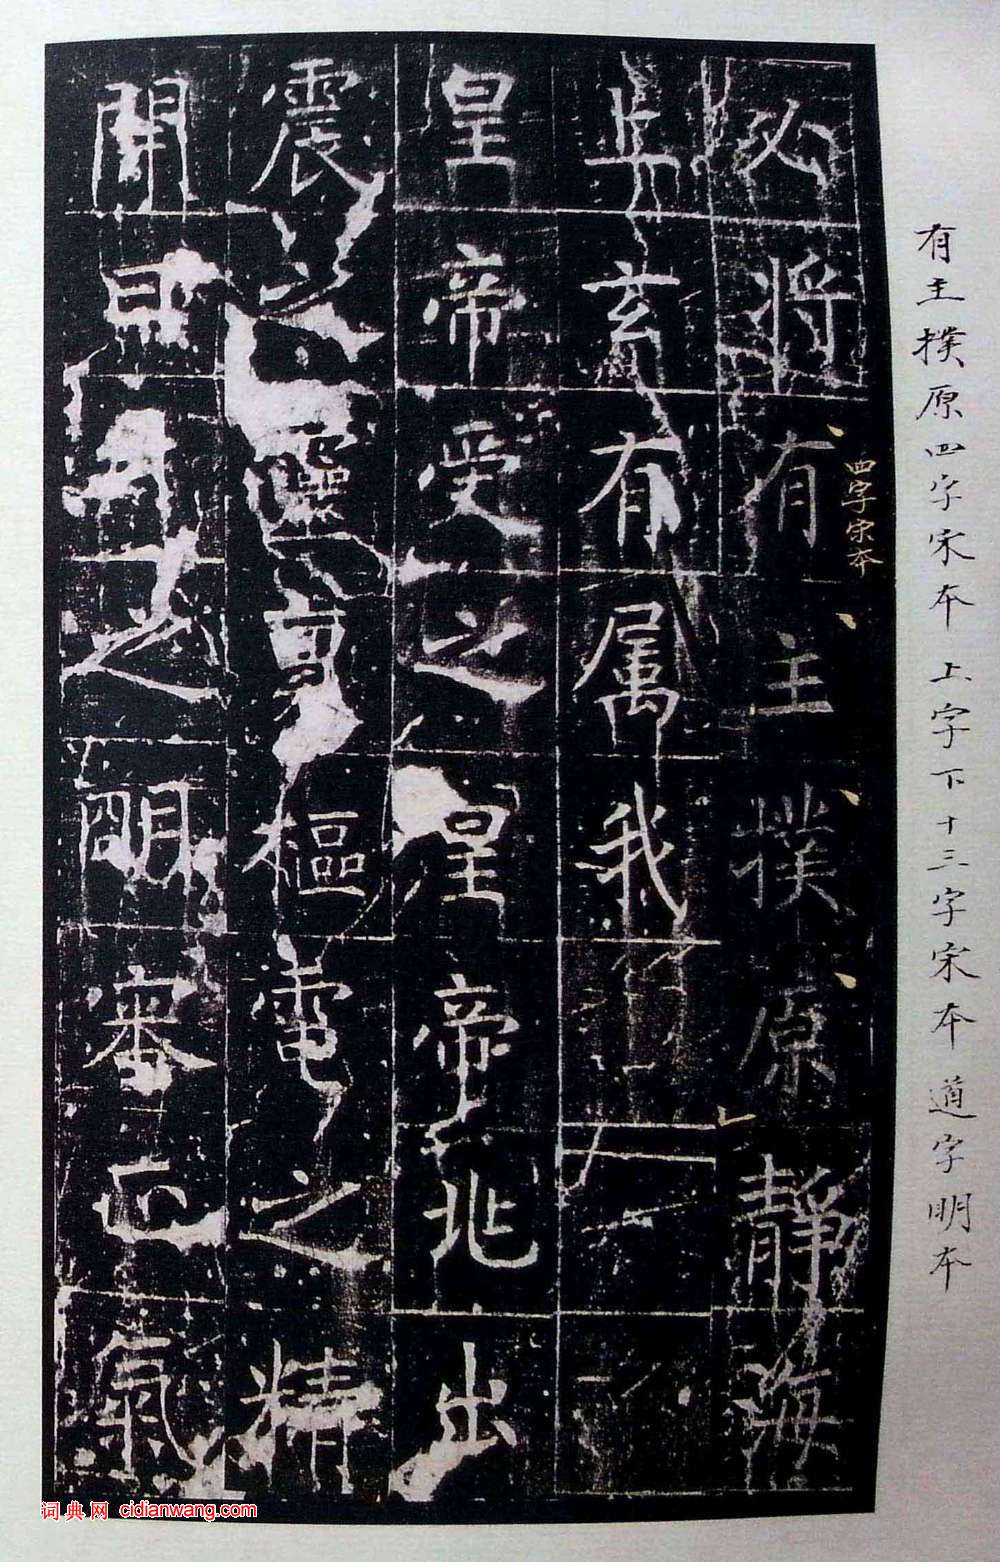 有主撲原四字宋本 上字下十三字宋本 道字明本
四字宋本
必将有主撲原靜海
玄有属我
皇帝受之皇帝兆出
震之靈 樞電之精
開日月之明審正氣
词典网 cidianwang.com